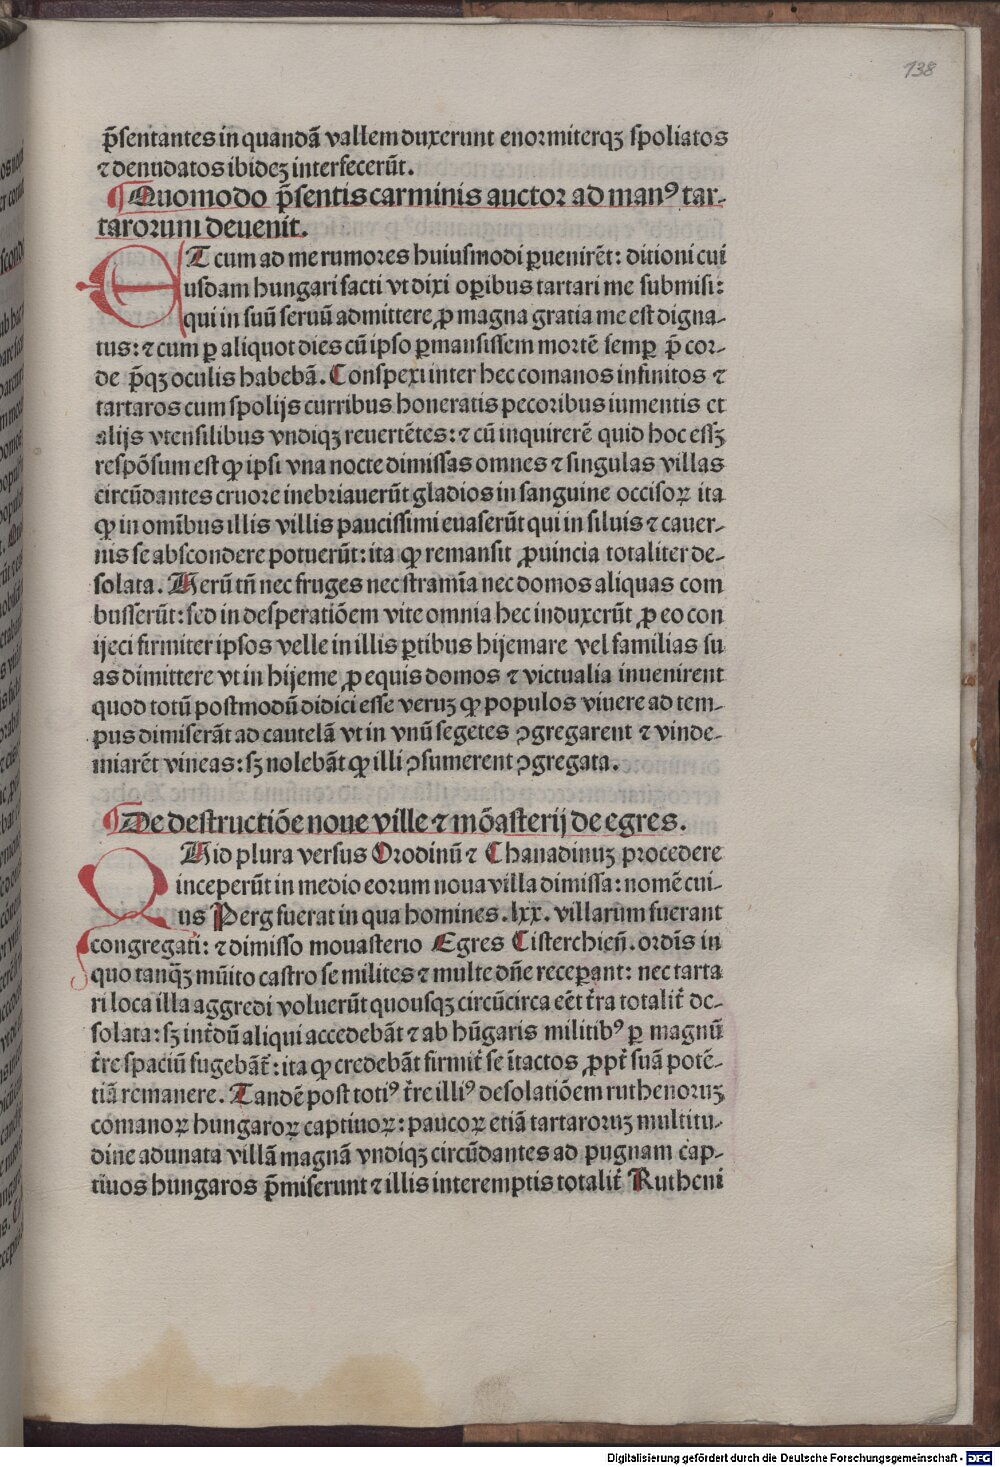 138
p̄sentantes in quandā vallem duxerunt enormiterqꝫ spoliatos
⁊ denudatos ibideꝫ interfecerūt.
¶ Quomodo p̄sentis carminis auctor ad manꝰ tar-
tarorum devenit.
ET cum ad me rumores huiusmodi ꝑuenirēt: ditioni cui
usdam hungari facti vt dixi oꝑibus tartari me submisi:
qui in suū seruū admittere ꝓ magna gratia me est digna-
tus: ⁊ cum ꝑ aliquot dies cū ipso ꝑmansissem mortē semꝑ p̄ cor-
de p̄qꝫ oculis habebā. Conspexi inter hec comanos infinitos ⁊
tartaros cum spolijs curribus honeratis pecoribus iumentis et
alijs vtensilibus vndiqꝫ reuertētes: ⁊ cū inquirerē quid hoc essꝫ
respōsum est ꝙ ipsi vna nocte dimissas omnes ⁊ singulas villas
circūdantes cruore inebriauerūt gladios in sanguine occisoꝝ ita
ꝙ in omībus illis villis paucissimi euaserūt qui in siluis ⁊ cauer-
nis se abscondere potuerūt: ita ꝙ remansit ꝓuincia totaliter de-
solata. Uerū tn̄ nec fruges nec stramīa nec domos aliquas com
busserūt: sed in desperatiōem vite omnia hec induxerūt ꝓ eo con
ijeci firmiter ipsos velle in illis ꝑtibus hijemare vel familias su
as dimittere vt in hijeme ꝓ equis domos ⁊ victualia inuenirent
quod totū postmodū didici esse veruꝫ ꝙ populos viuere ad tem-
pus dimiserāt ad cautelā vt in vnū segetes ꝯgregarent ⁊ vinde-
miarēt vineas: sꝫ nolebāt ꝙ illi ꝯsumerent ꝯgregata.
¶ De destructiōe noue ville ⁊ mōasterij de egres.
QUid plura versus Orodinū ⁊ Chanadinuꝫ procedere
inceperūt in medio eorum noua villa dimissa: nomē cui-
us Perg fuerat in qua homines .lxx. villarum fuerant
congregati: ⁊ dimisso mouasterio Egres Cisterchien̄. ordīs in
quo tanqꝫ mūito castro se milites ⁊ multe dn̄e receꝑant: nec tarta
ri loca illa aggredi voluerūt quousqꝫ circūcirca eēt t̄ra totalit̄ de-
solata: sꝫ int̄dū aliqui accedebāt ⁊ ab hūgaris militibꝰ ꝑ magnū
t̄re spaciū fugebāt̄: ita ꝙ credebāt firmit̄ se ītactos ꝓpt̄ suā potē-
tiā remanere. Tandē post totiꝰ t̄re illiꝰ desolatiōem ruthenoruꝫ
comanoꝝ hungaroꝝ captiuoꝝ: paucoꝝ etiā tartaroruꝫ multitu-
dine adunata villā magnā vndiqꝫ circūdantes ad pugnam cap-
tiuos hungaros p̄miserunt ⁊ illis interemptis totalit̄ Rutheni
Digitalisierung gefördert durch die Deutsche Forschungsgemeinschaft - DFG